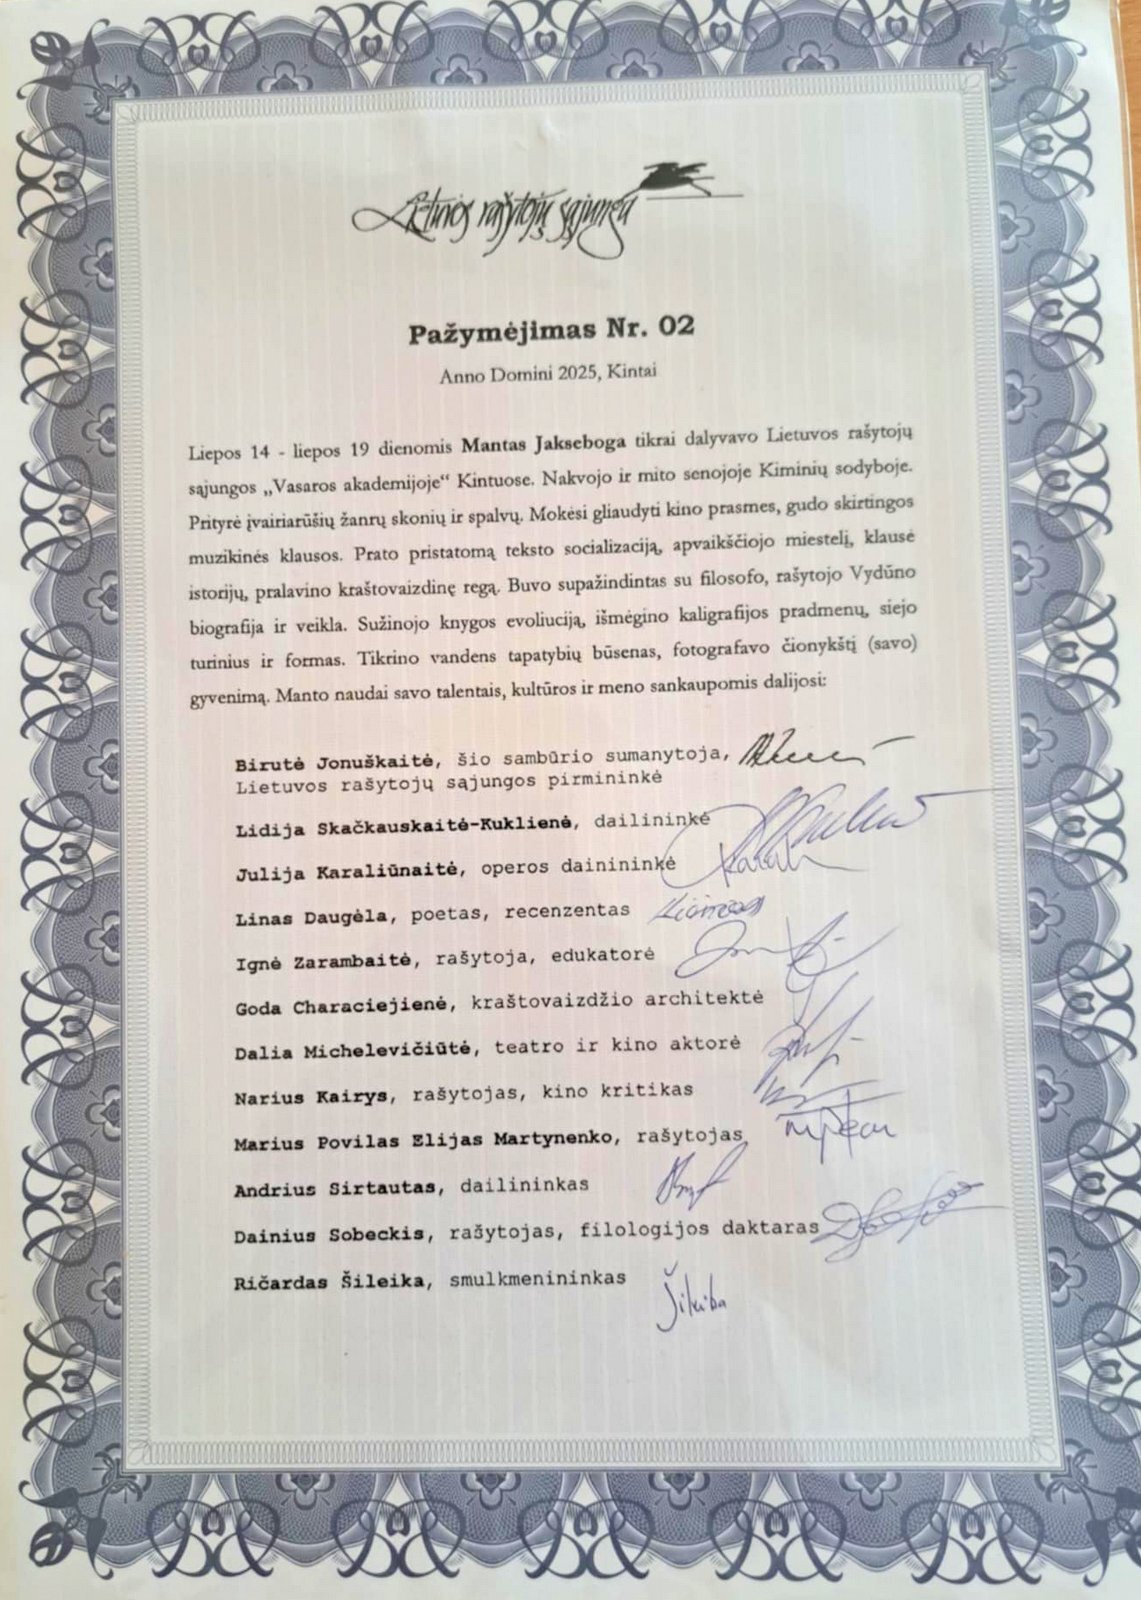 Lietuvos rašytojų sąjunga
Pažymėjimas Nr. 02
Anno Domini 2025, Kintai
Liepos 14 - liepos 19 dienomis Mantas Jakseboga tikrai dalyvavo Lietuvos rašytojų
sąjungos „Vasaros akademijoje“ Kintuose. Nakvojo ir mito senojoje Kiminių sodyboje.
Prityrė įvairiarūšių žanrų skonių ir spalvų. Mokėsi gliaudyti kino prasmes, gudo skirtingos
muzikinės klausos. Prato pristatomą teksto socializaciją, apvaikščiojo miestelį, klausė
istorijų, pralavino kraštovaizdinę regą. Buvo supažindintas su filosofo, rašytojo Vydūno
biografija ir veikla. Sužinojo knygos evoliuciją, išmėgino kaligrafijos pradmenų, siejo
turinius ir formas. Tikrino vandens tapatybių būsenas, fotografavo čionykštį (savo)
gyvenimą. Manto naudai savo talentais, kultūros ir meno sankaupomis dalijosi:
Birutė Jonuškaitė, šio sambūrio sumanytoja,
Lietuvos rašytojų sąjungos pirmininkė
Lidija Skačkauskaitė-Kuklienė, dailininkė
Julija Karaliūnaitė, operos dainininkė
Linas Daugėla, poetas, recenzentas
Ignė Zarambaitė, rašytoja, edukatorė
Goda Characiejienė, kraštovaizdžio architektė
Dalia Michelevičiūtė, teatro ir kino aktorė
Narius Kairys, rašytojas, kino kritikas
Marius Povilas Elijas Martynenko, rašytojas
Andrius Sirtautas, dailininkas
Dainius Sobeckis, rašytojas, filologijos daktaras
Ričardas Šileika, smulkmenininkas